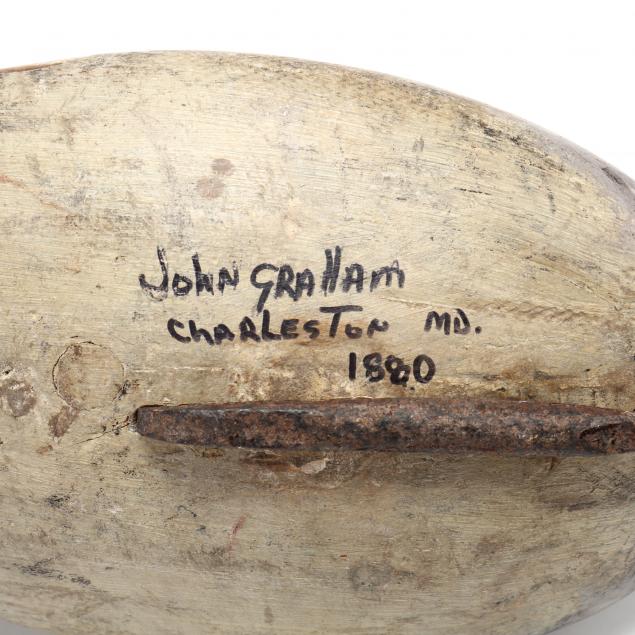 JOHN GRAHAM
CHARLESTON MD.
1880